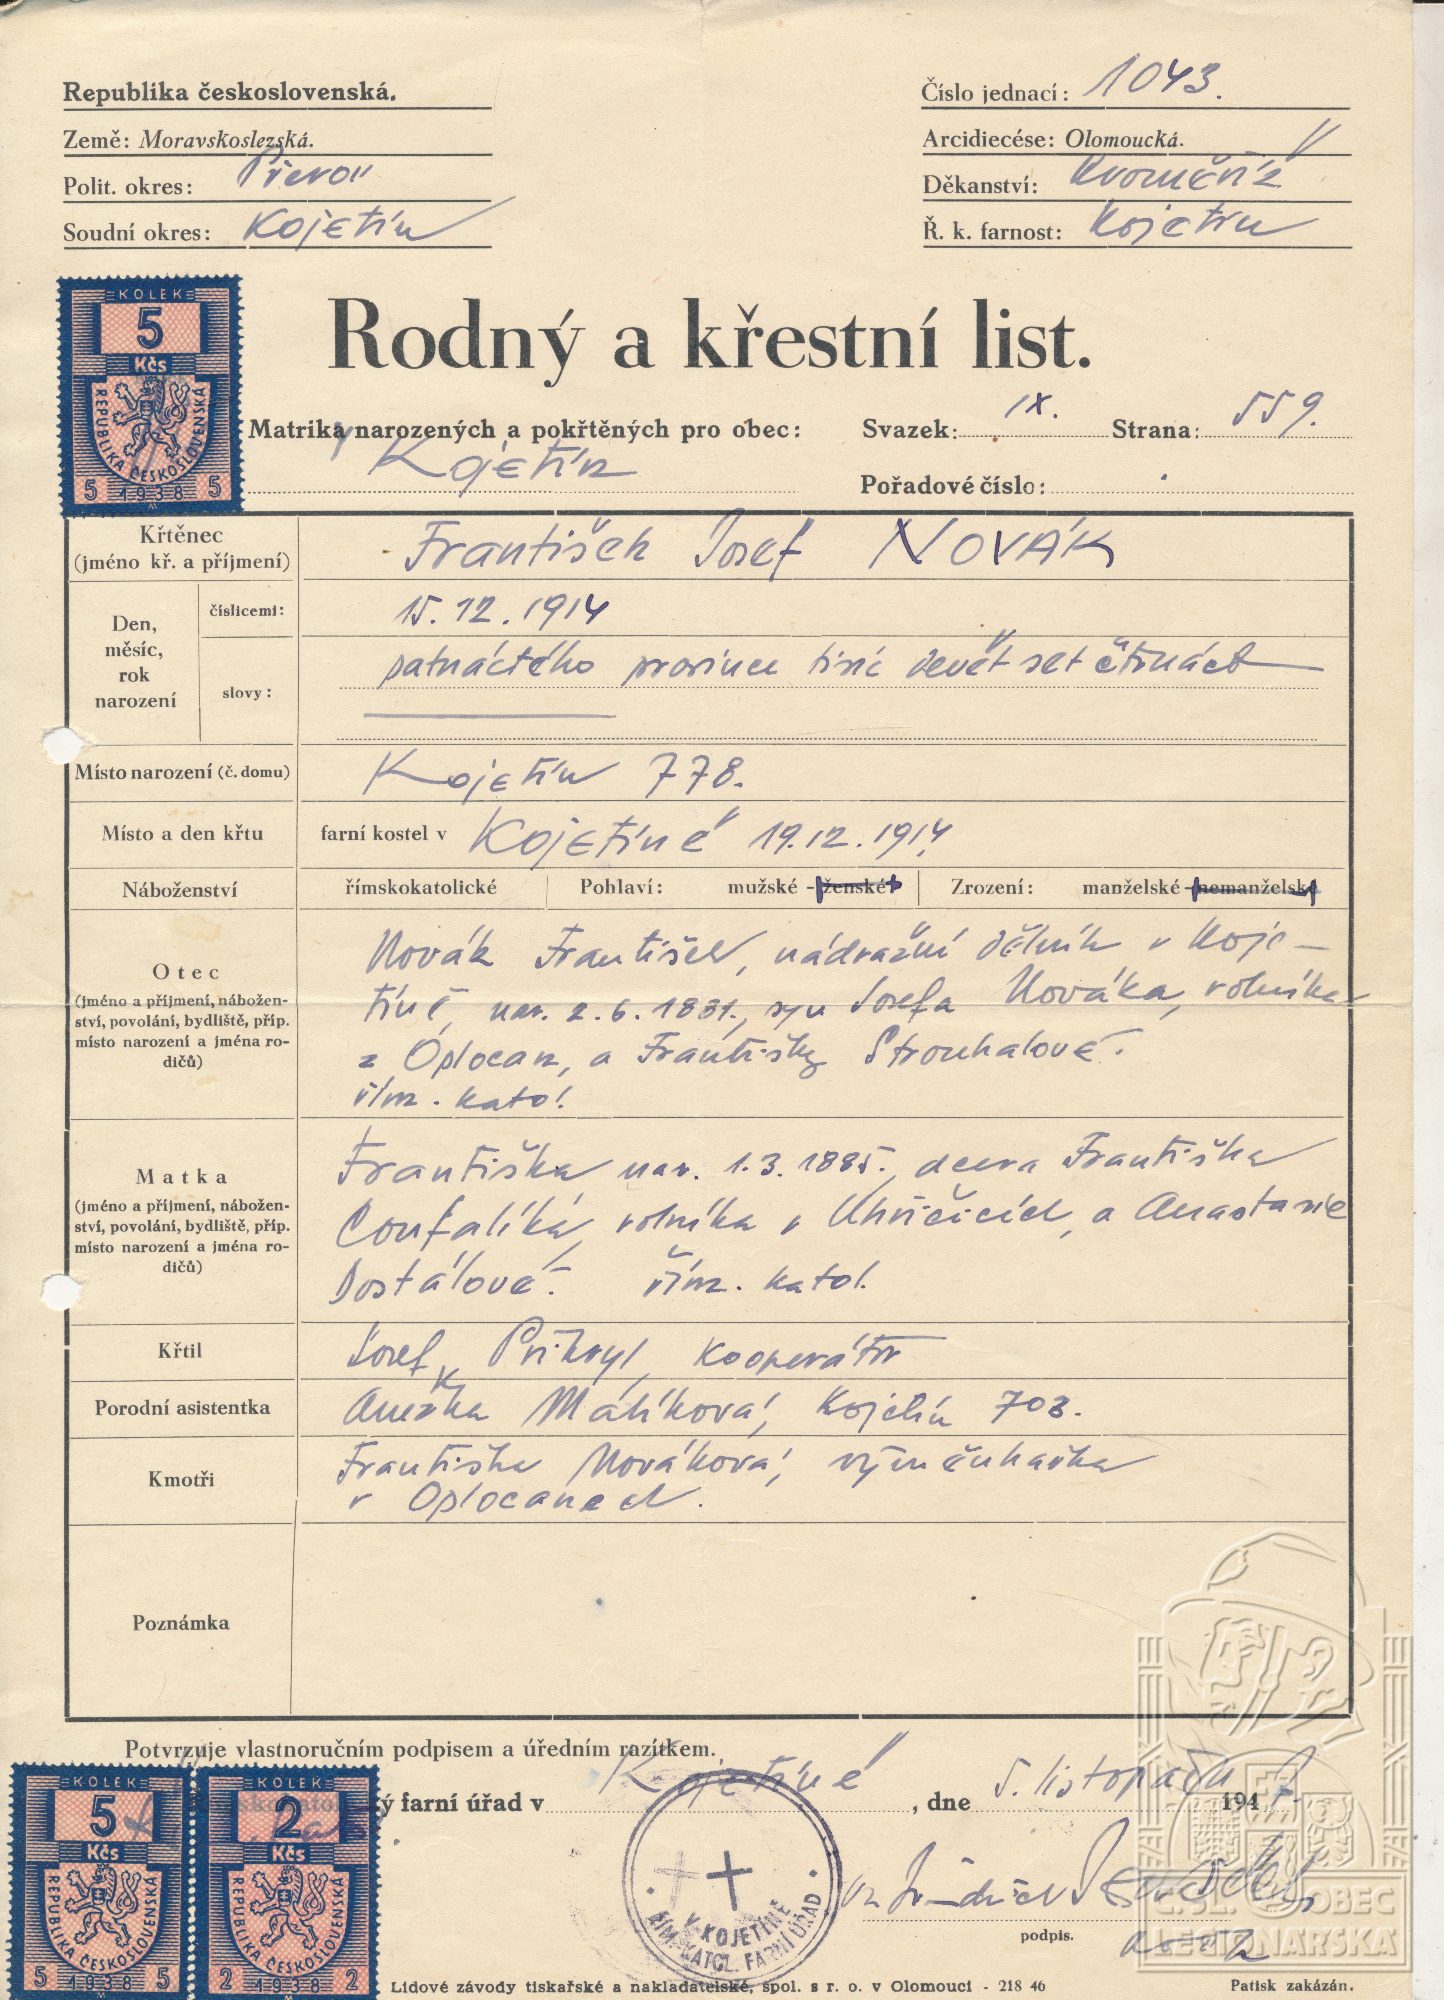 Republika československá.
Číslo jednací: 1043.
Země: Moravskoslezská.
Arcidiecése: Olomoucká.
Polit. okres: Přerov
Děkanství: Kroměříž
Soudní okres: Kojetín
Ř. k. farnost: Kojetín
KOLEK
5
Kčs
REPUBLIKA ČESKOSLOVENSKÁ
5 1938 5
Rodný a křestní list.
Matrika narozených a pokřtěných pro obec:
Svazek: IX. Strana: 559.
Kojetín
Pořadové číslo:
Křtěnec
(jméno kř. a příjmení)
František Josef NOVÁK
Den,
měsíc,
rok
narození
číslicemi:
15.12.1914
slovy:
patnáctého prosince tisíc devět set čtrnáct
Místo narození (č. domu)
Kojetín 778.
Místo a den křtu
farní kostel v Kojetíně 19.12.1914
Náboženství
římskokatolické
Pohlaví: mužské - ženské
Zrození: manželské - nemanželské
Otec
(jméno a příjmení, nábožen-
ství, povolání, bydliště, příp.
místo narození a jména ro-
dičů)
Novák František, nádražní dělník v Koje-
tíně, nar. 2.6.1881., syn Josefa Nováka, rolníka
z Oplocan, a Františky Strouhalové.
řím. katol.
Matka
(jméno a příjmení, nábožen-
ství, povolání, bydliště, příp.
místo narození a jména ro-
dičů)
Františka nar. 1.3.1885., dcera Františka
Coufalíka, rolníka v Uhřičicích, a Anastazie
Dostálové. řím. katol.
Křtil
Josef Přikryl, kooperátor
Porodní asistentka
Anežka Malíková, Kojetín 703.
Kmotři
Františka Nováková, výměnkařka
v Oplocanech.
Poznámka
Potvrzuje vlastnoručním podpisem a úředním razítkem.
farní úřad v Kojetíně, dne 5. listopadu 194
KOLEK
5
Kčs
REPUBLIKA ČESKOSLOVENSKÁ
5 1938 5
KOLEK
2
Kčs
REPUBLIKA ČESKOSLOVENSKÁ
2 1938 2
V KOJETÍNĚ
ŘÍM. KATOL. FARNÍ ÚŘAD
podpis.
Č.SL. OBEC
LEGIONÁŘSKÁ
Lidové závody tiskařské a nakladatelské, spol. s r. o. v Olomouci - 218 46
Patisk zakázán.